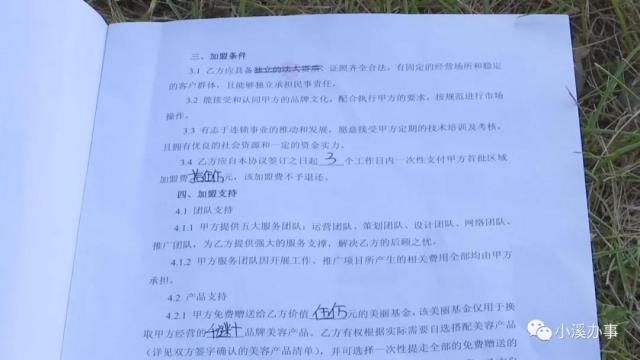 三、加盟条件
3.1 乙方应具备独立的法人资格、证照齐全合法，有固定的经营场所和稳定
的客户群体，且能够独立承担民事责任。
3.2 能接受和认同甲方的品牌文化，配合执行甲方的要求，按规范进行市场
操作。
3.3 有志于连锁事业的推动和发展，愿意接受甲方定期的技术培训及考核，
且拥有优良的社会资源和一定的资金实力。
3.4 乙方应自本协议签订之日起 3 个工作日内一次性支付甲方首批区域
加盟费 元，该加盟费不予退还。
四、加盟支持
4.1 团队支持
4.1.1 甲方提供五大服务团队：运营团队、策划团队、设计团队、网络团队、
推广团队，为乙方提供强大的服务支撑，解决乙方的后顾之忧。
4.1.2 甲方服务团队因开展工作、推广项目所产生的相关费用全部均由甲方
承担。
4.2 产品支持
4.2.1 甲方免费赠送给乙方价值 伍佰 元的美丽基金，该美丽基金仅用于换
取甲方经营的 品牌美容产品。乙方有权根据实际需要自选搭配美容产品
（详见双方签字确认的美容产品清单），并可选择一次性提走全部的免费赠送的
小溪办事